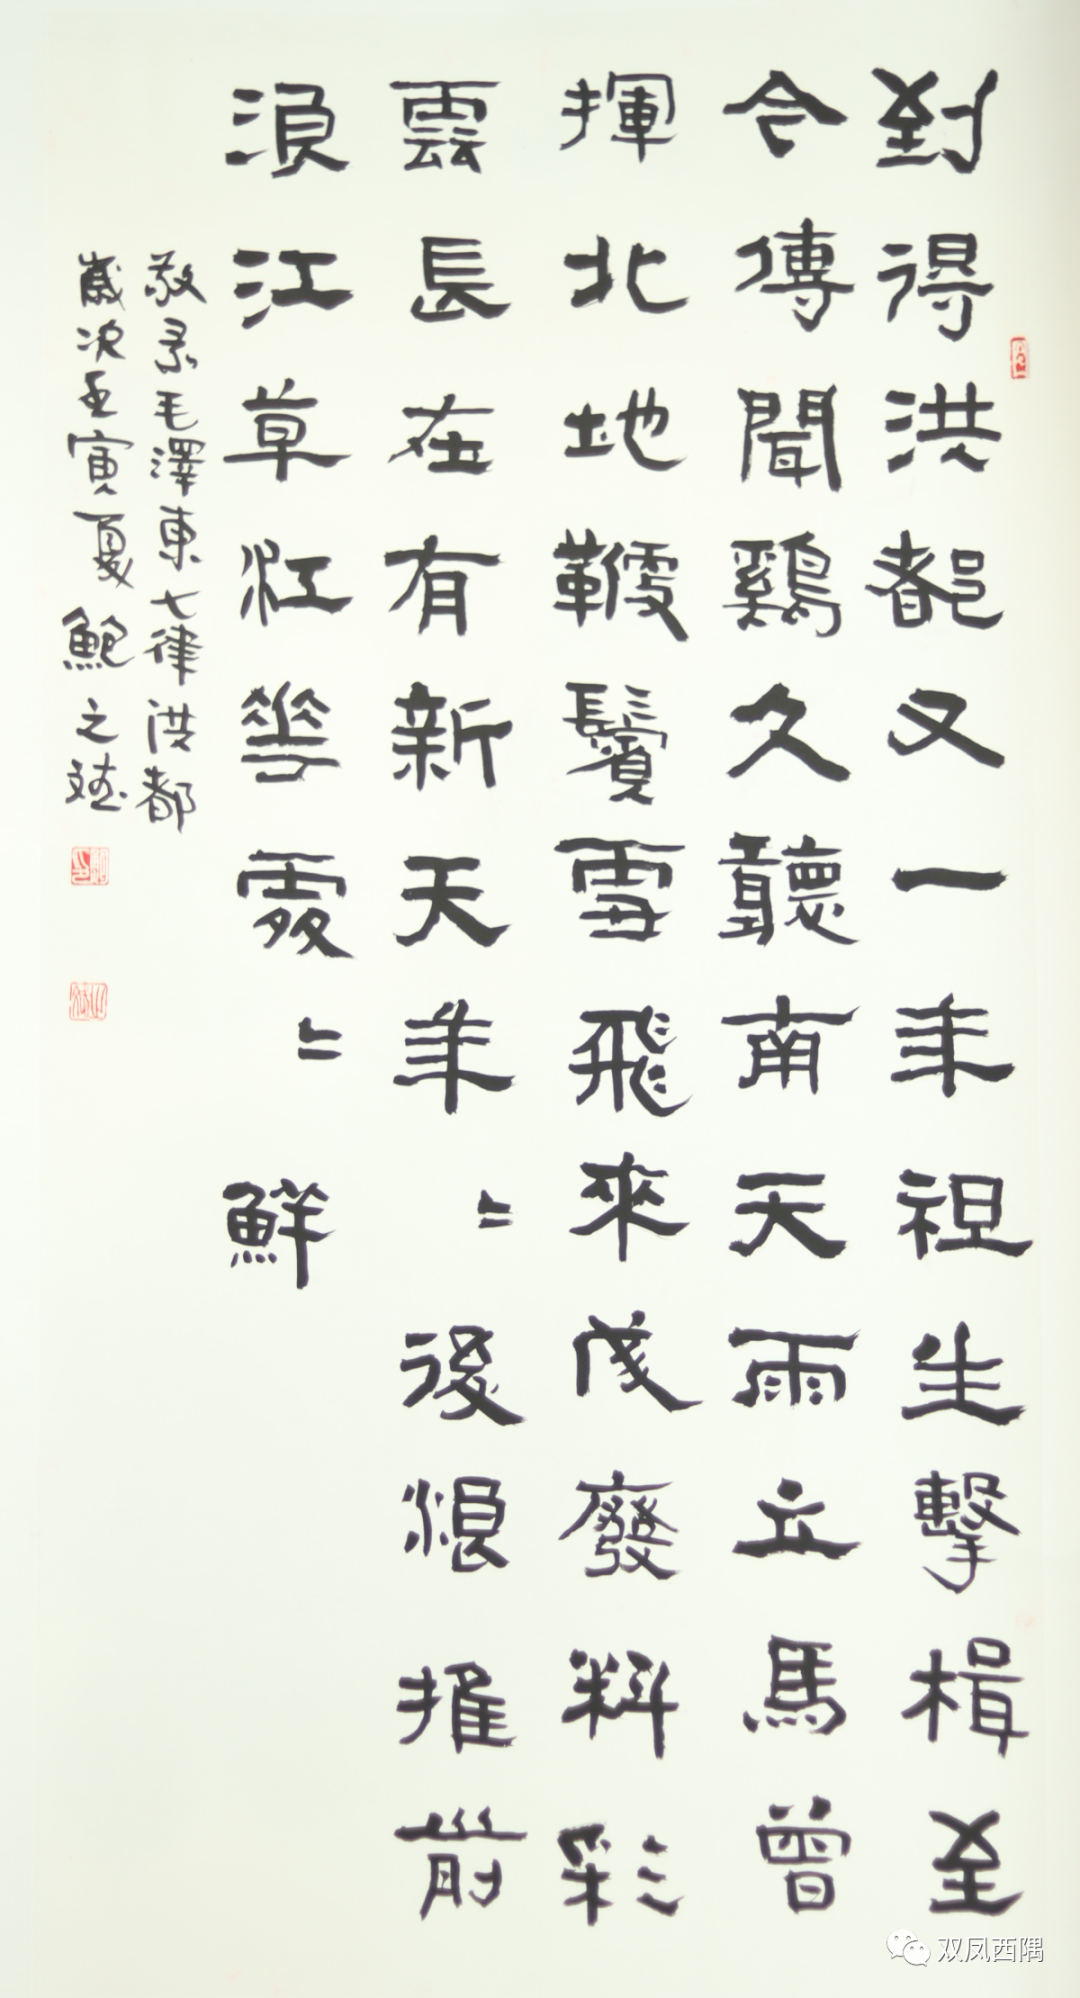 到得洪都又一年祖生擊楫至
今傳聞鷄久聽南天雨立馬曾
揮北地鞭鬢雪飛來成廢料彩
雲長在有新天年〻後浪推前
浪江草江華處〻鮮
敬录毛澤東七律洪都
歲次壬寅夏鮑之斌
双凤西隅